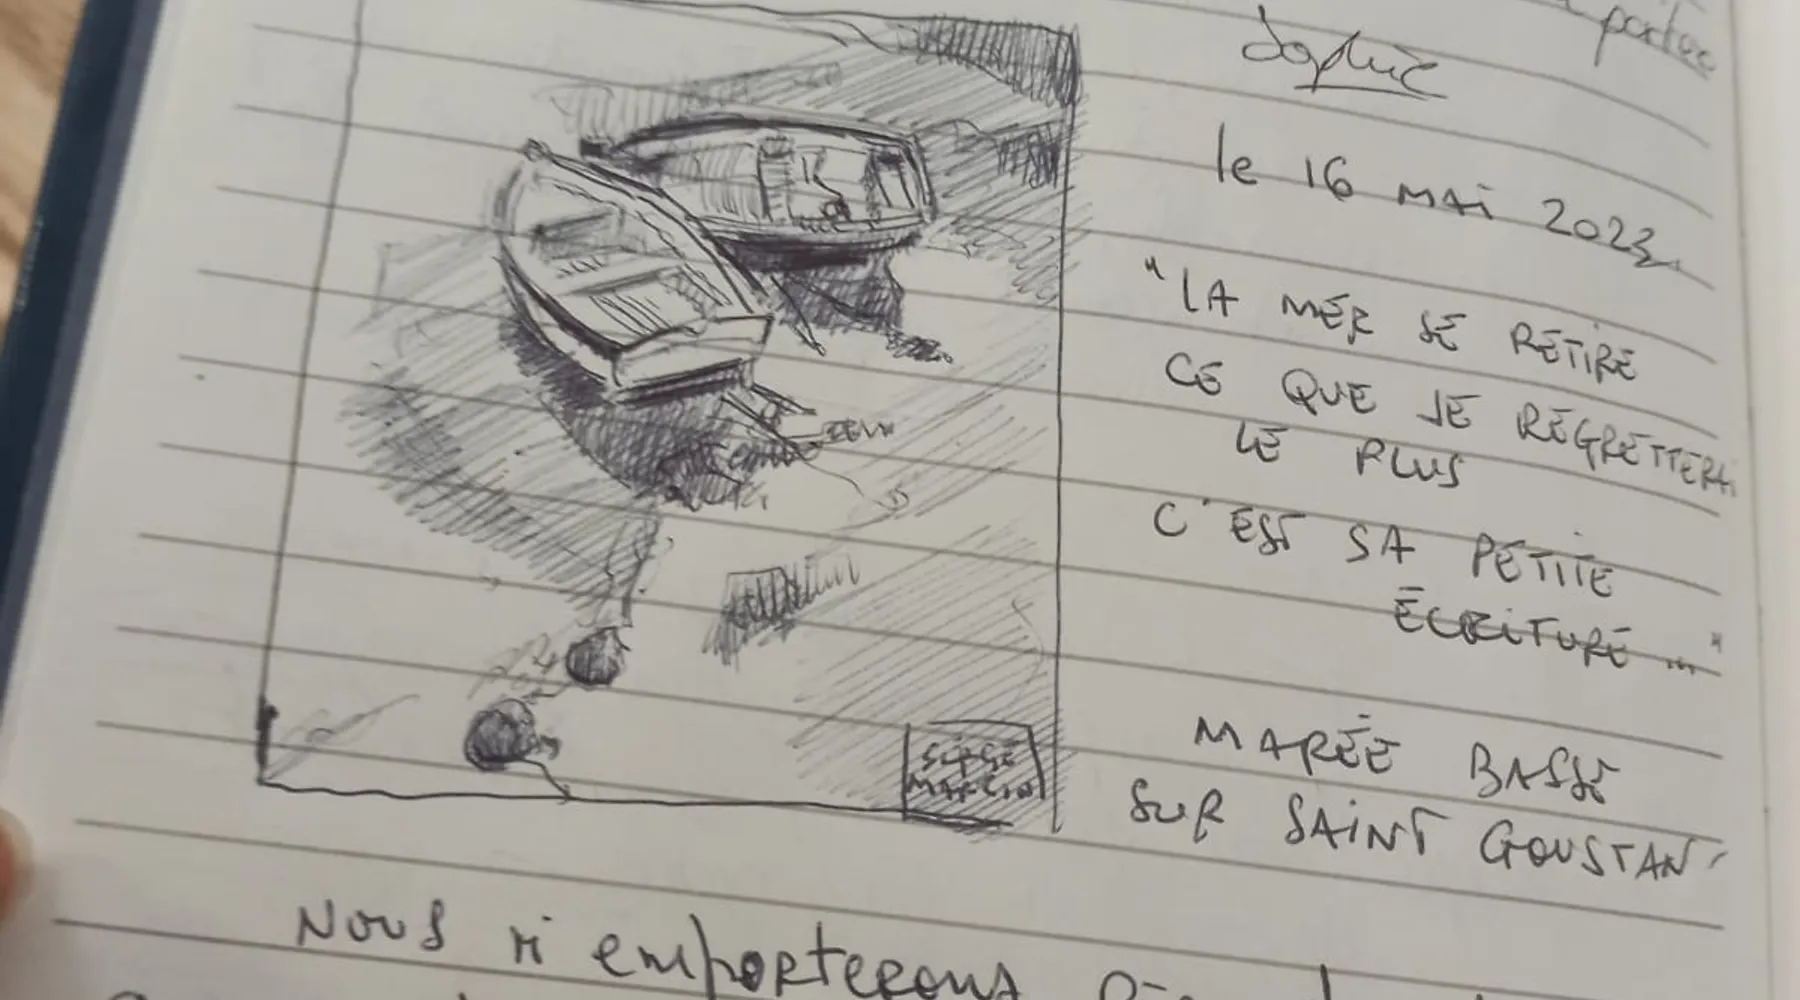 portée
Sophie
le 16 MAI 2023
"LA MER SE RETIRE
CE QUE JE REGRETTERAI
LE PLUS
C'EST SA PETITE
ÉCRITURE ..."
MARÉE BASSE
SUR SAINT GOUSTAN
SERGE
NOUS N'emporterons